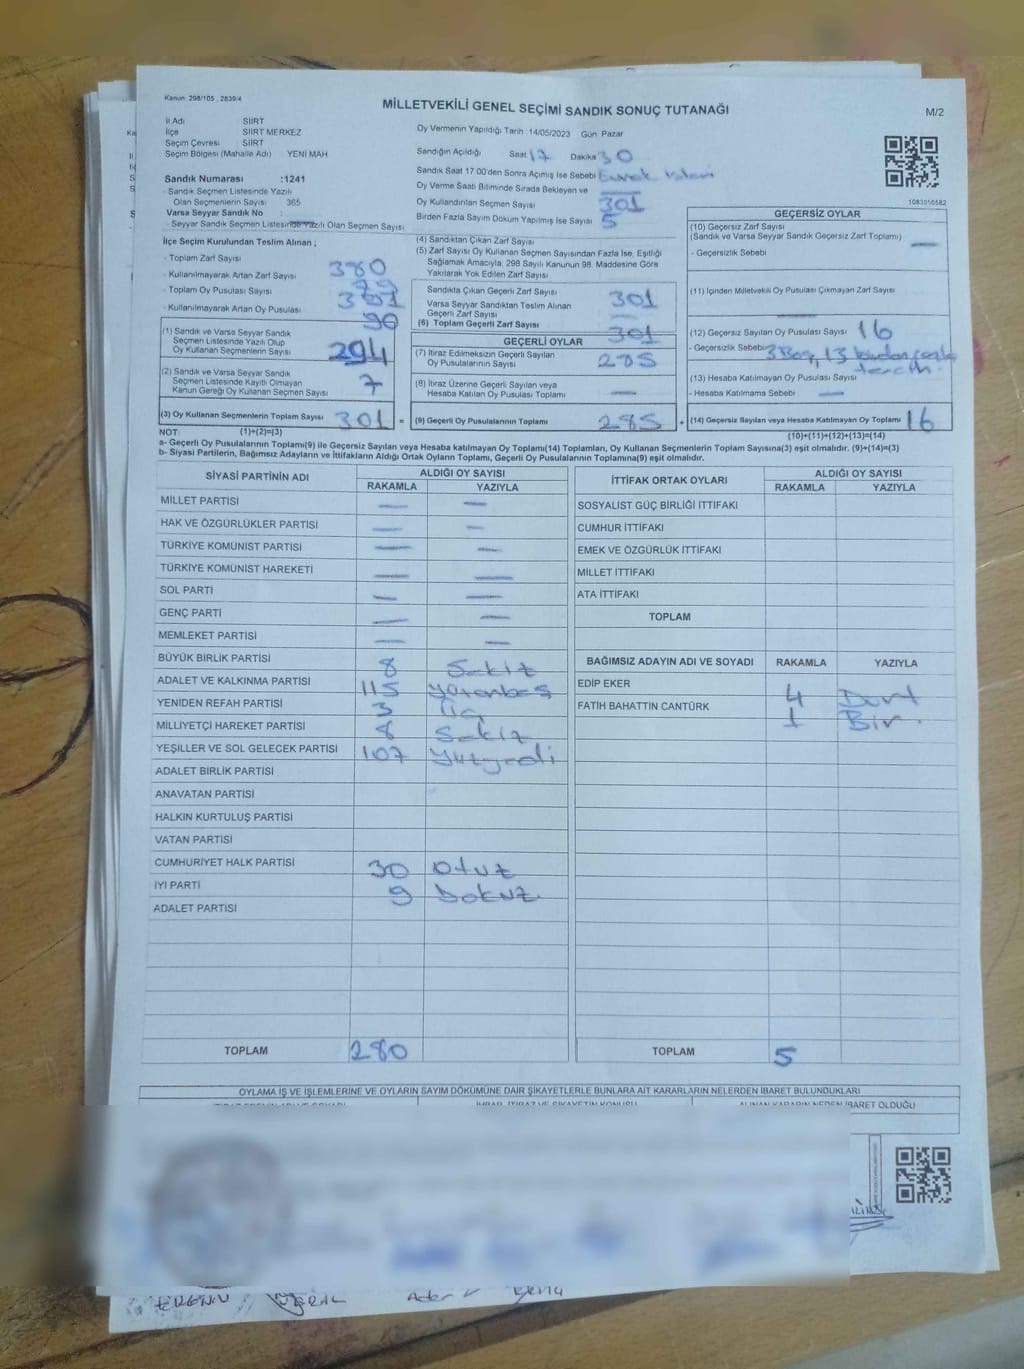 Kanun: 298/105 , 2839/4
MİLLETVEKİLİ GENEL SEÇİMİ SANDIK SONUÇ TUTANAĞI
M/2
İl Adı SİİRT
İlçe SİİRT MERKEZ
Seçim Çevresi SİİRT
Seçim Bölgesi (Mahalle Adı) YENİ MAH
Sandık Numarası :1241
- Sandık Seçmen Listesinde Yazılı
Olan Seçmenlerin Sayısı 365
Varsa Seyyar Sandık No
- Seyyar Sandık Seçmen Listesinde Yazılı Olan Seçmen Sayısı
Oy Vermenin Yapıldığı Tarih :14/05/2023 Gün: Pazar
Sandığın Açıldığı Saat 17 Dakika 30
Sandık Saat 17.00'den Sonra Açımış İse Sebebi
Oy Verme Saati Bitiminde Sırada Bekleyen ve
Oy Kullandırılan Seçmen Sayısı 301
Birden Fazla Sayım Döküm Yapılmış İse Sayısı 5
1083556582
İlçe Seçim Kurulundan Teslim Alınan ;
- Toplam Zarf Sayısı 380
- Kullanılmayarak Artan Zarf Sayısı 79
- Toplam Oy Pusulası Sayısı
- Kullanılmayarak Artan Oy Pusulası 90
(1) Sandık ve Varsa Seyyar Sandık
Seçmen Listesinde Yazılı Olup
Oy Kullanan Seçmenlerin Sayısı 294
(2) Sandık ve Varsa Seyyar Sandık
Seçmen Listesinde Kayıtlı Olmayan
Kanun Gereği Oy Kullanan Seçmen Sayısı 7
(3) Oy Kullanan Seçmenlerin Toplam Sayısı 301 =
(4) Sandıktan Çıkan Zarf Sayısı
(5) Zarf Sayısı Oy Kullanan Seçmen Sayısından Fazla İse, Eşitliği
Sağlamak Amacıyla, 298 Sayılı Kanunun 98. Maddesine Göre
Yakılarak Yok Edilen Zarf Sayısı
Sandıkta Çıkan Geçerli Zarf Sayısı 301
Varsa Seyyar Sandıktan Teslim Alınan
Geçerli Zarf Sayısı
(6) Toplam Geçerli Zarf Sayısı 301
GEÇERLİ OYLAR
(7) İtiraz Edilmeksizin Geçerli Sayılan
Oy Pusulalarının Sayısı 285
(8) İtiraz Üzerine Geçerli Sayılan veya
Hesaba Katılan Oy Pusulası Toplamı
(9) Geçerli Oy Pusulalarının Toplamı 285 +
GEÇERSİZ OYLAR
(10) Geçersiz Zarf Sayısı
(Sandık ve Varsa Seyyar Sandık Geçersiz Zarf Toplamı)
- Geçersizlik Sebebi
(11) İçinden Milletvekili Oy Pusulası Çıkmayan Zarf Sayısı
(12) Geçersiz Sayılan Oy Pusulası Sayısı 16
- Geçersizlik Sebebi 3 Boş, 13 birden fazla
tercih.
(13) Hesaba Katılmayan Oy Pusulası Sayısı
- Hesaba Katılmama Sebebi
(14) Geçersiz Sayılan veya Hesaba Katılmayan Oy Toplamı 16
NOT: (1)+(2)=(3)
(10)+(11)+(12)+(13)=(14)
a- Geçerli Oy Pusulalarının Toplamı(9) ile Geçersiz Sayılan veya Hesaba katılmayan Oy Toplamı(14) Toplamları, Oy Kullanan Seçmenlerin Toplam Sayısına(3) eşit olmalıdır. (9)+(14)=(3)
b- Siyasi Partilerin, Bağımsız Adayların ve İttifakların Aldığı Ortak Oyların Toplamı, Geçerli Oy Pusulalarının Toplamına(9) eşit olmalıdır.
SİYASİ PARTİNİN ADI
ALDIĞI OY SAYISI
RAKAMLA YAZIYLA
MİLLET PARTİSİ
HAK VE ÖZGÜRLÜKLER PARTİSİ
TÜRKİYE KOMÜNİST PARTİSİ
TÜRKİYE KOMÜNİST HAREKETİ
SOL PARTİ
GENÇ PARTİ
MEMLEKET PARTİSİ
BÜYÜK BİRLİK PARTİSİ 8 Sekiz
ADALET VE KALKINMA PARTİSİ 115 yüzonbeş
YENİDEN REFAH PARTİSİ 3 Üç
MİLLİYETÇİ HAREKET PARTİSİ 8 Sekiz
YEŞİLLER VE SOL GELECEK PARTİSİ 107 yüzyedi
ADALET BİRLİK PARTİSİ
ANAVATAN PARTİSİ
HALKIN KURTULUŞ PARTİSİ
VATAN PARTİSİ
CUMHURİYET HALK PARTİSİ 30 Otuz
İYİ PARTİ 9 Dokuz
ADALET PARTİSİ
TOPLAM 280
İTTİFAK ORTAK OYLARI
ALDIĞI OY SAYISI
RAKAMLA YAZIYLA
SOSYALİST GÜÇ BİRLİĞİ İTTİFAKI
CUMHUR İTTİFAKI
EMEK VE ÖZGÜRLÜK İTTİFAKI
MİLLET İTTİFAKI
ATA İTTİFAKI
TOPLAM
BAĞIMSIZ ADAYIN ADI VE SOYADI RAKAMLA YAZIYLA
EDİP EKER 4 Dört
FATİH BAHATTİN CANTÜRK 1 Bir.
TOPLAM 5
OYLAMA İŞ VE İŞLEMLERİNE VE OYLARIN SAYIM DÖKÜMÜNE DAİR ŞİKAYETLERLE BUNLARA AİT KARARLARIN NELERDEN İBARET BULUNDUKLARI
İHBAR, İTİRAZ VE ŞİKAYETİN KONUSU
ALINAN KARARIN NEDEN İBARET OLDUĞU